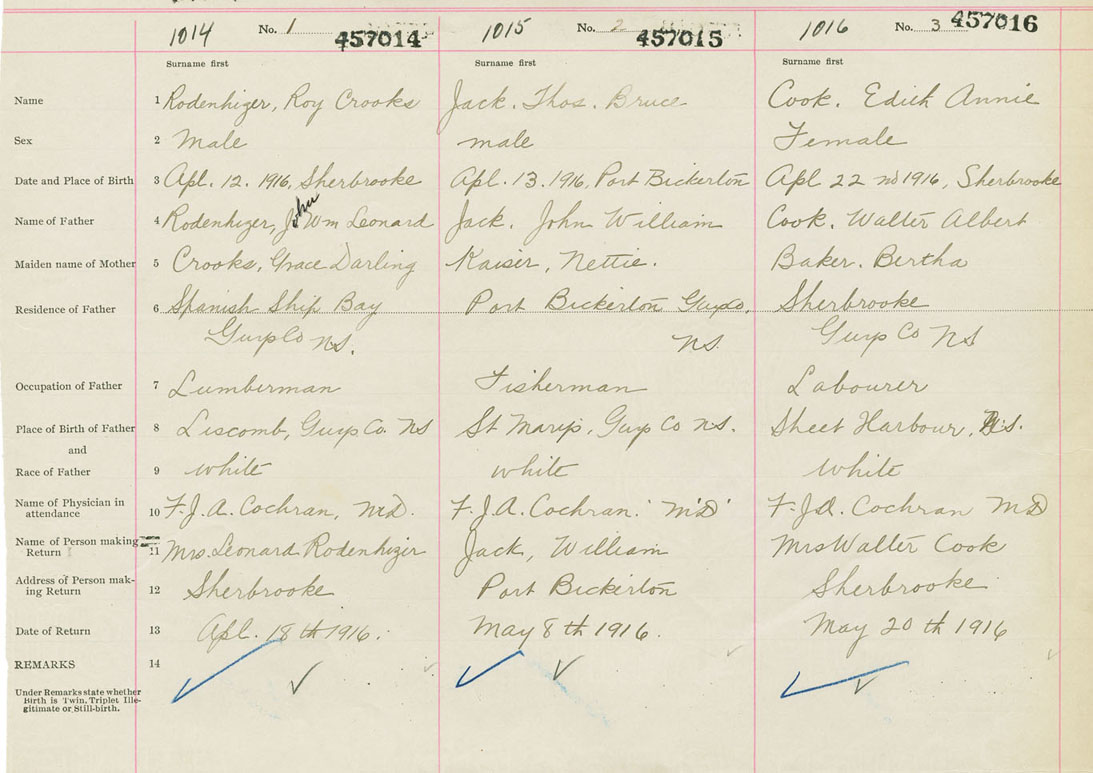 1014 No. 1 457014 1015 No. 2 457015 1016 No. 3 457016
Surname first Surname first Surname first
Name 1 Rodenhizer, Roy Crooks Jack. Thos. Bruce Cook. Edith Annie
Sex 2 Male male Female
Date and Place of Birth 3 Apl. 12. 1916, Sherbrooke Apl. 13. 1916, Port Bickerton Apl 22 nd 1916, Sherbrooke
John
Name of Father 4 Rodenhizer, Wm Leonard Jack. John William Cook. Walter Albert
Maiden name of Mother 5 Crooks, Grace Darling Kaiser, Nettie. Baker. Bertha
Residence of Father 6 Spanish Ship Bay Port Bickerton Guys Co. Sherbrooke
Guys Co NS. NS. Guys Co NS
Occupation of Father 7 Lumberman Fisherman Labourer
Place of Birth of Father 8 Liscomb, Guys Co. NS St Marys, Guys Co NS. Sheet Harbour, N.S.
and
Race of Father 9 white white white
Name of Physician in
attendance 10 F. J. A. Cochran, MD. F. J. A. Cochran. MD F. J. A. Cochran MD
Name of Person making
Return 11 Mrs. Leonard Rodenhizer Jack, William Mrs Walter Cook
Address of Person mak-
ing Return 12 Sherbrooke Port Bickerton Sherbrooke
Date of Return 13 Apl. 18 th 1916. May 8 th 1916. May 20 th 1916
REMARKS 14
Under Remarks state whether
Birth is Twin, Triplet Ille-
gitimate or Still-birth.